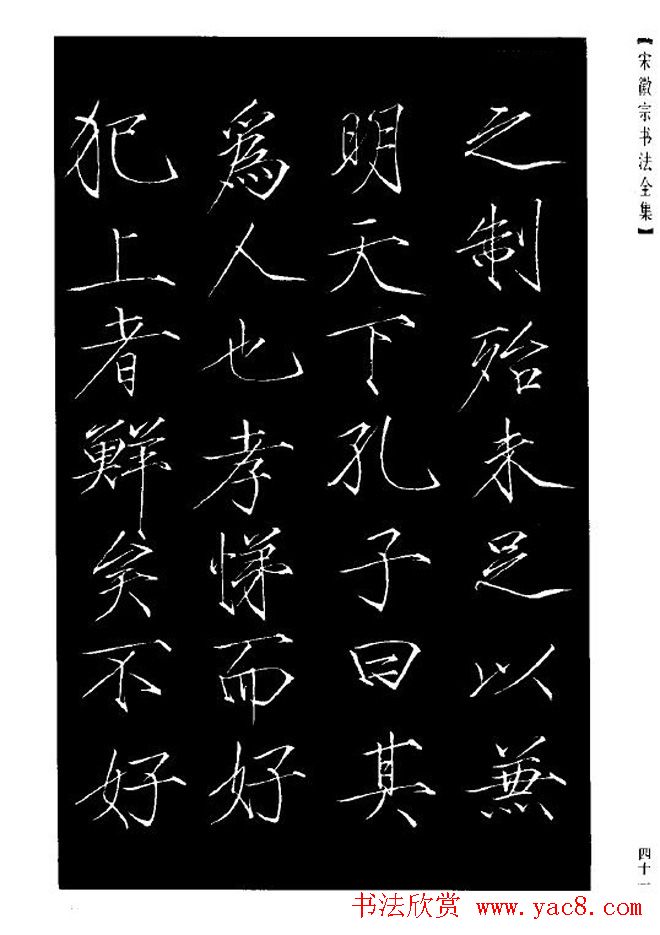 【宋徽宗书法全集】
之制殆未足以兼
明天下孔子曰其
爲人也孝悌而好
犯上者鮮矣不好
四十一
书法欣赏 www.yac8.com